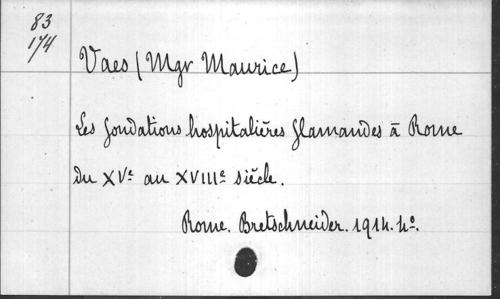 83
174
Vaes (Mgr Maurice)
Les fondations hospitalières flamandes à Rome
du XVe au XVIIIe siècle.
Rome. Bretschneider. 1914. 4o.